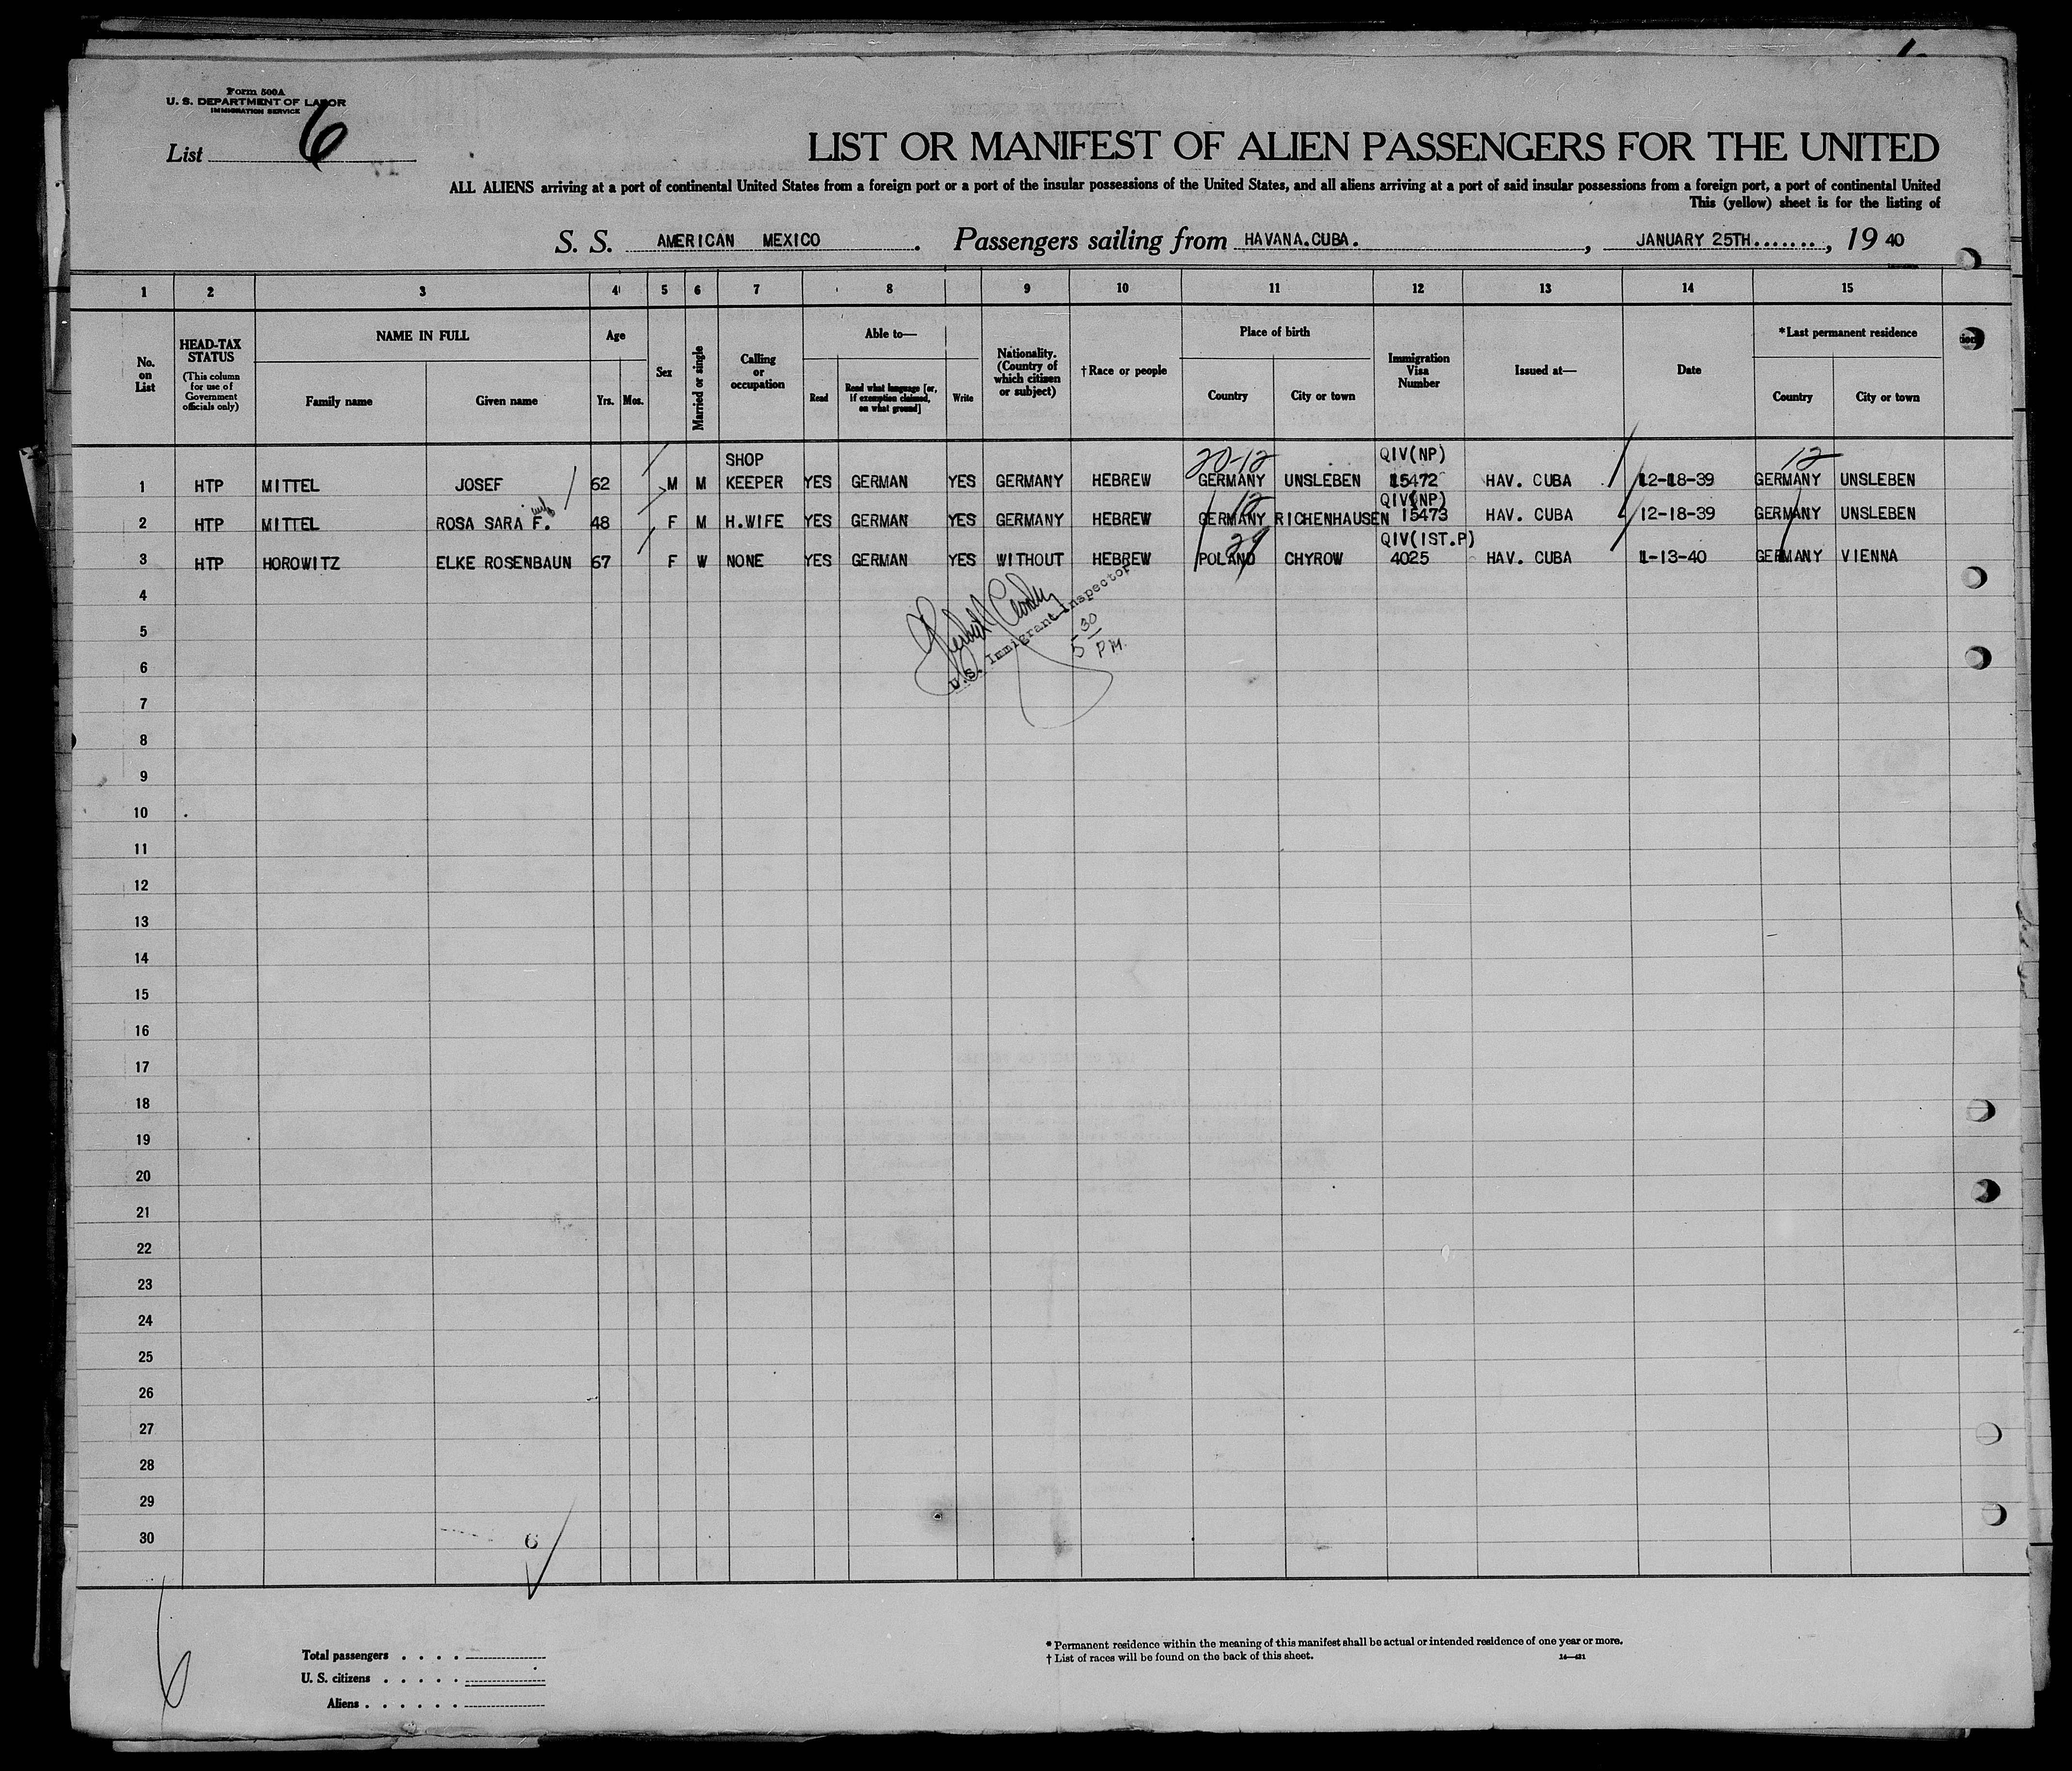 Form 500A
U. S. DEPARTMENT OF LABOR
IMMIGRATION SERVICE
List 6
LIST OR MANIFEST OF ALIEN PASSENGERS FOR THE UNITED
ALL ALIENS arriving at a port of continental United States from a foreign port or a port of the insular possessions of the United States, and all aliens arriving at a port of said insular possessions from a foreign port, a port of continental United
This (yellow) sheet is for the listing of
S. S. AMERICAN MEXICO. Passengers sailing from HAVANA.CUBA., JANUARY 25TH......., 19 40
1 2 3 4 5 6 7 8 9 10 11 12 13 14 15
No. on List
HEAD-TAX STATUS
(This column for use of Government officials only)
NAME IN FULL
Family name Given name
Age
Yrs. Mos.
Sex
Married or single
Calling or occupation
Able to—
Read
Read what language [or, if exemption claimed, on what ground]
Write
Nationality. (Country of which citizen or subject)
†Race or people
Place of birth
Country City or town
Immigration Visa Number
Issued at—
Date
*Last permanent residence
Country City or town
SHOP 20-12 QIV(NP) 12
1 HTP MITTEL JOSEF 62 M M KEEPER YES GERMAN YES GERMANY HEBREW GERMANY UNSLEBEN 15472 HAV. CUBA 12-18-39 GERMANY UNSLEBEN
wife 12 QIV(NP)
2 HTP MITTEL ROSA SARA F. 48 F M H.WIFE YES GERMAN YES GERMANY HEBREW GERMANY RICHENHAUSEN 15473 HAV. CUBA 12-18-39 GERMANY UNSLEBEN
29 QIV(IST.P)
3 HTP HOROWITZ ELKE ROSENBAUN 67 F W NONE YES GERMAN YES WITHOUT HEBREW POLAND CHYROW 4025 HAV. CUBA 1-13-40 GERMANY VIENNA
U.S. Immigrant Inspector
5 30 P.M.
4
5
6
7
8
9
10
11
12
13
14
15
16
17
18
19
20
21
22
23
24
25
26
27
28
29
30
6
6
Total passengers . . . .
U. S. citizens . . . . .
Aliens . . . . . .
* Permanent residence within the meaning of this manifest shall be actual or intended residence of one year or more.
† List of races will be found on the back of this sheet.
14—421